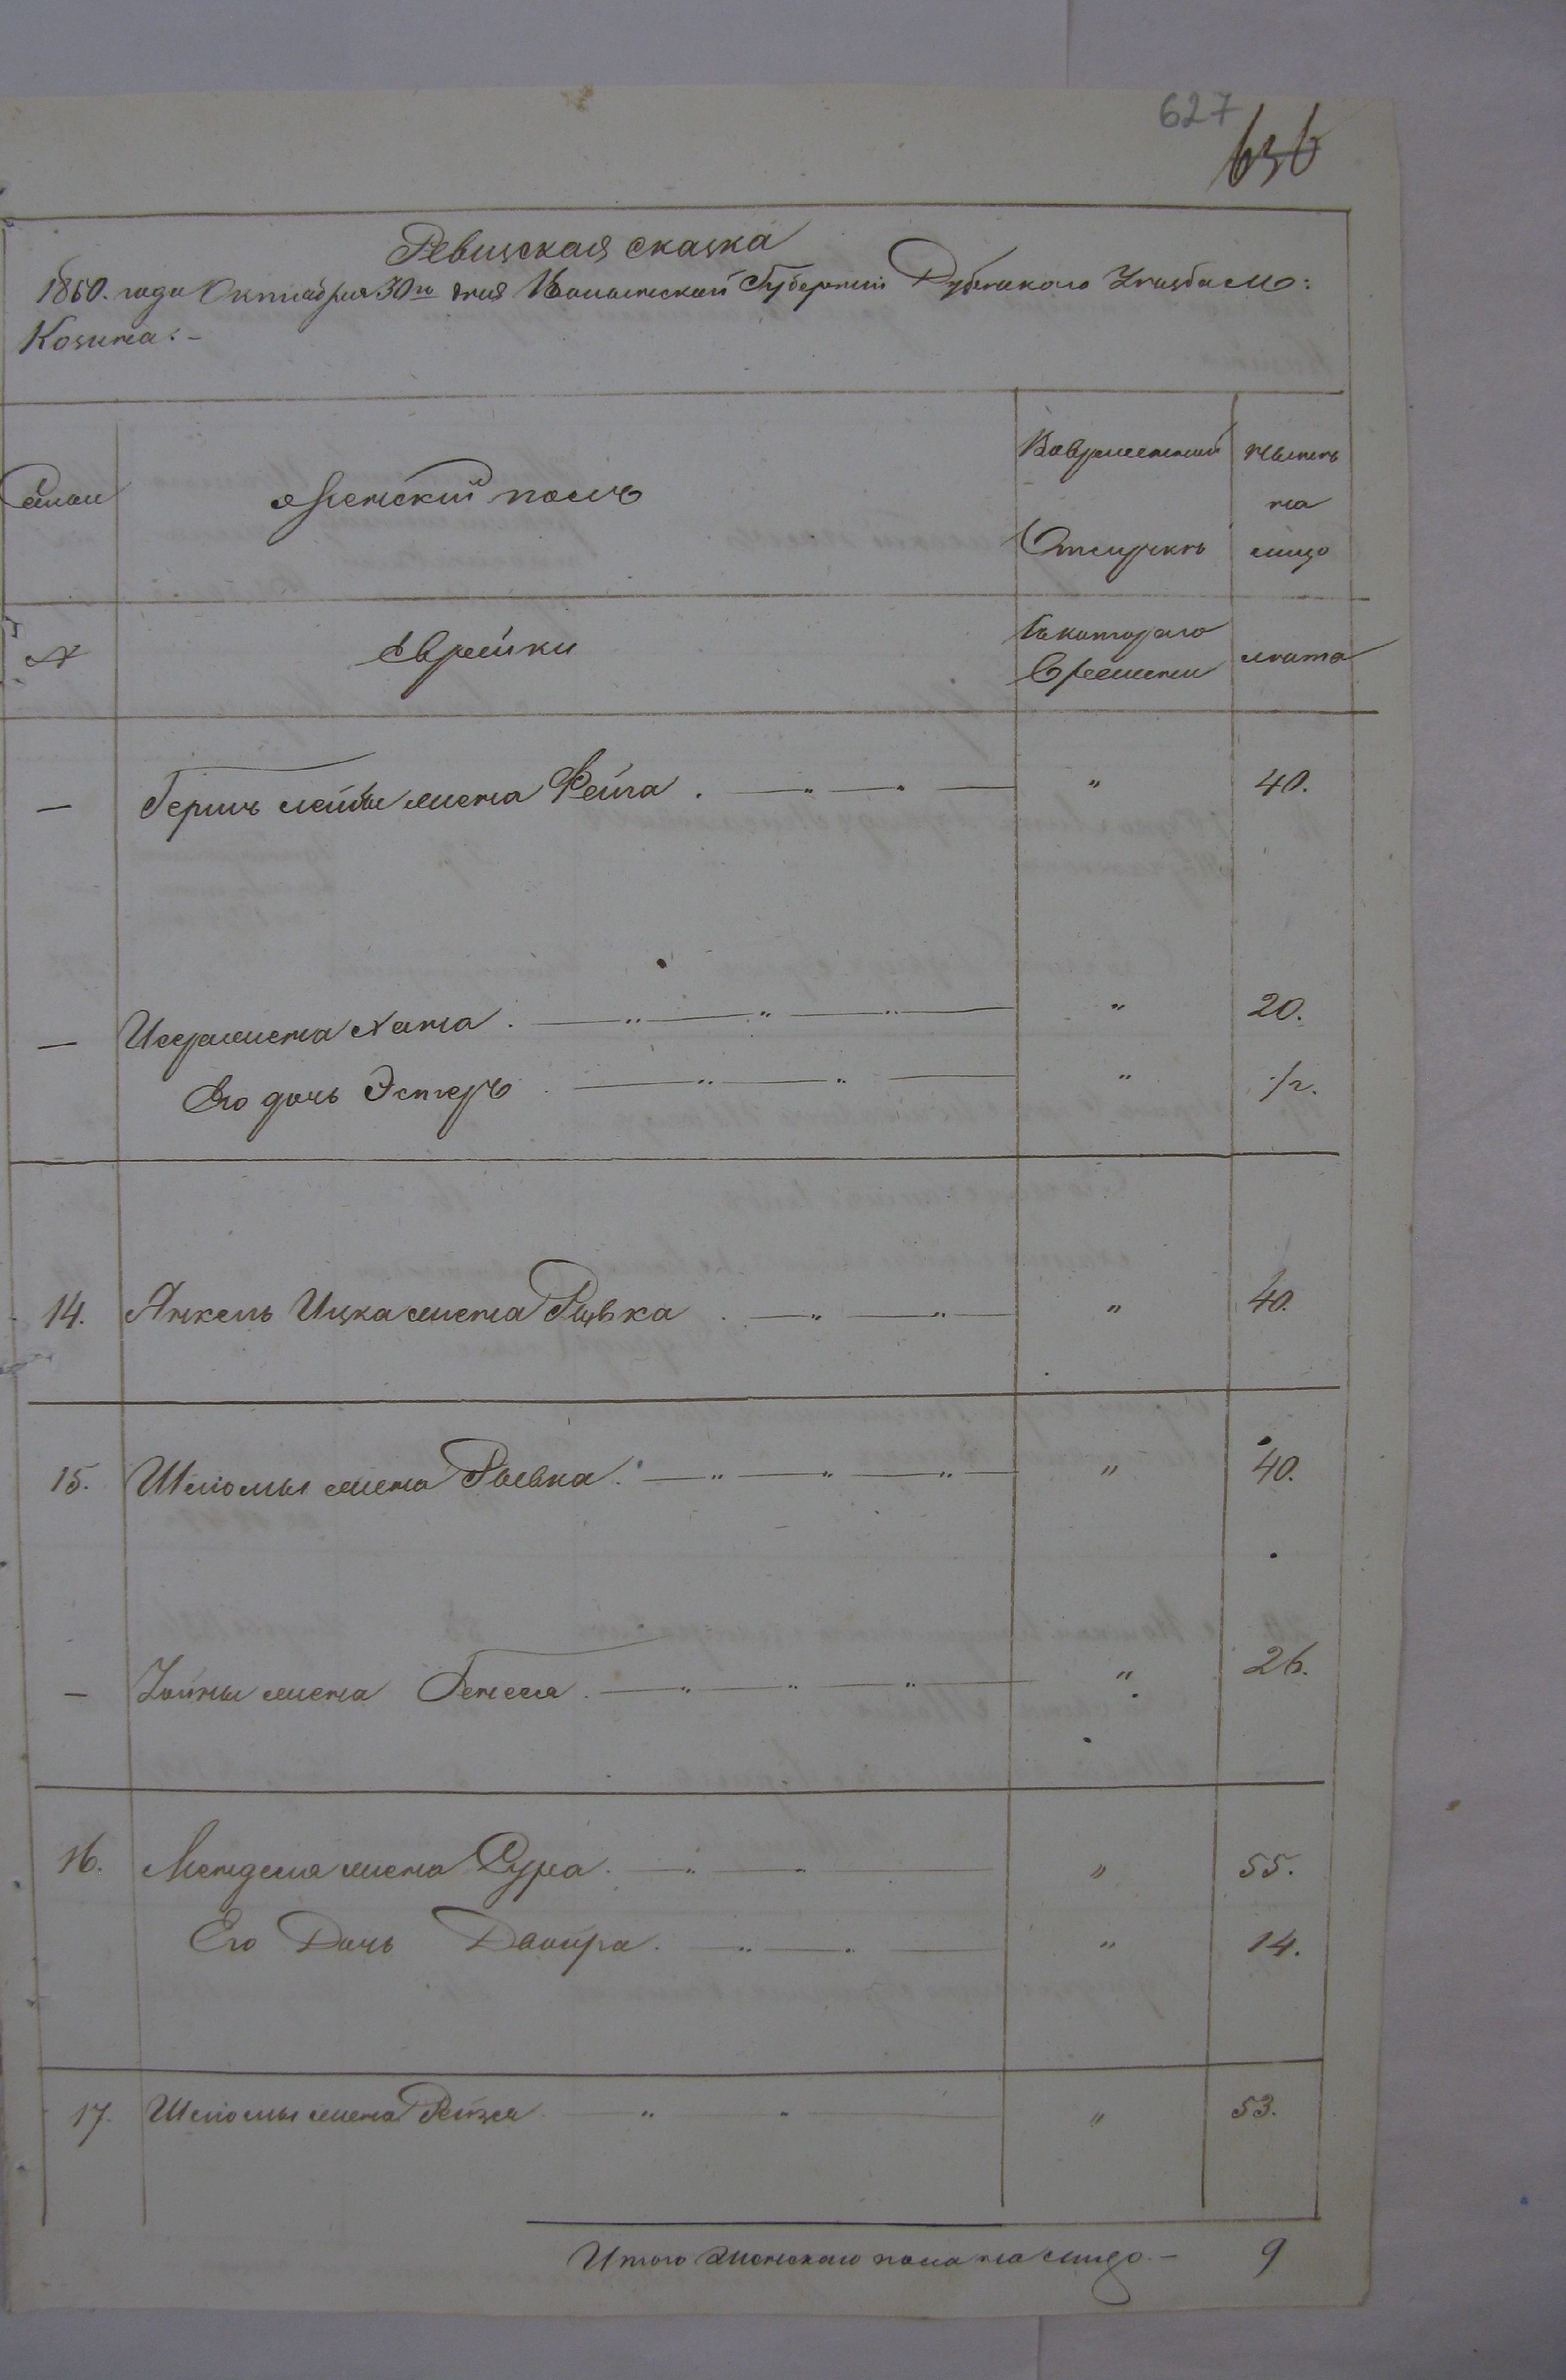 627
636
Ревизская сказка
1850. года Октября 30го дня Волынской Губернии Дубенского Уезда м:
Козина: –
Семьи
Женский полъ
Во временной Отлучке
ныне на лицо
№
Еврейки
Съ котораго времени
лета
— Гершъ Лейбы жена Фейга . — „ — „ — „ 40.
— Иосся жена Хана . — „ — „ — „ — „ 20.
Его дочь Эстеръ . — „ — „ — „ 1/2.
14. Анкель Ицка жена Рывка . — „ — „ — „ 40.
15. Шліомы жена Рывка . — „ — „ — „ — „ 40.
— Зойны жена Генеся . — „ — „ — „ — „ 26.
16. Менделя жена Сура . — „ — „ — „ 55.
Его Дочь Двойра . — „ — „ — „ 14.
17. Шліомы жена Рейзя „ „ — „ 53.
Итого женскаго пола на лицо. – 9